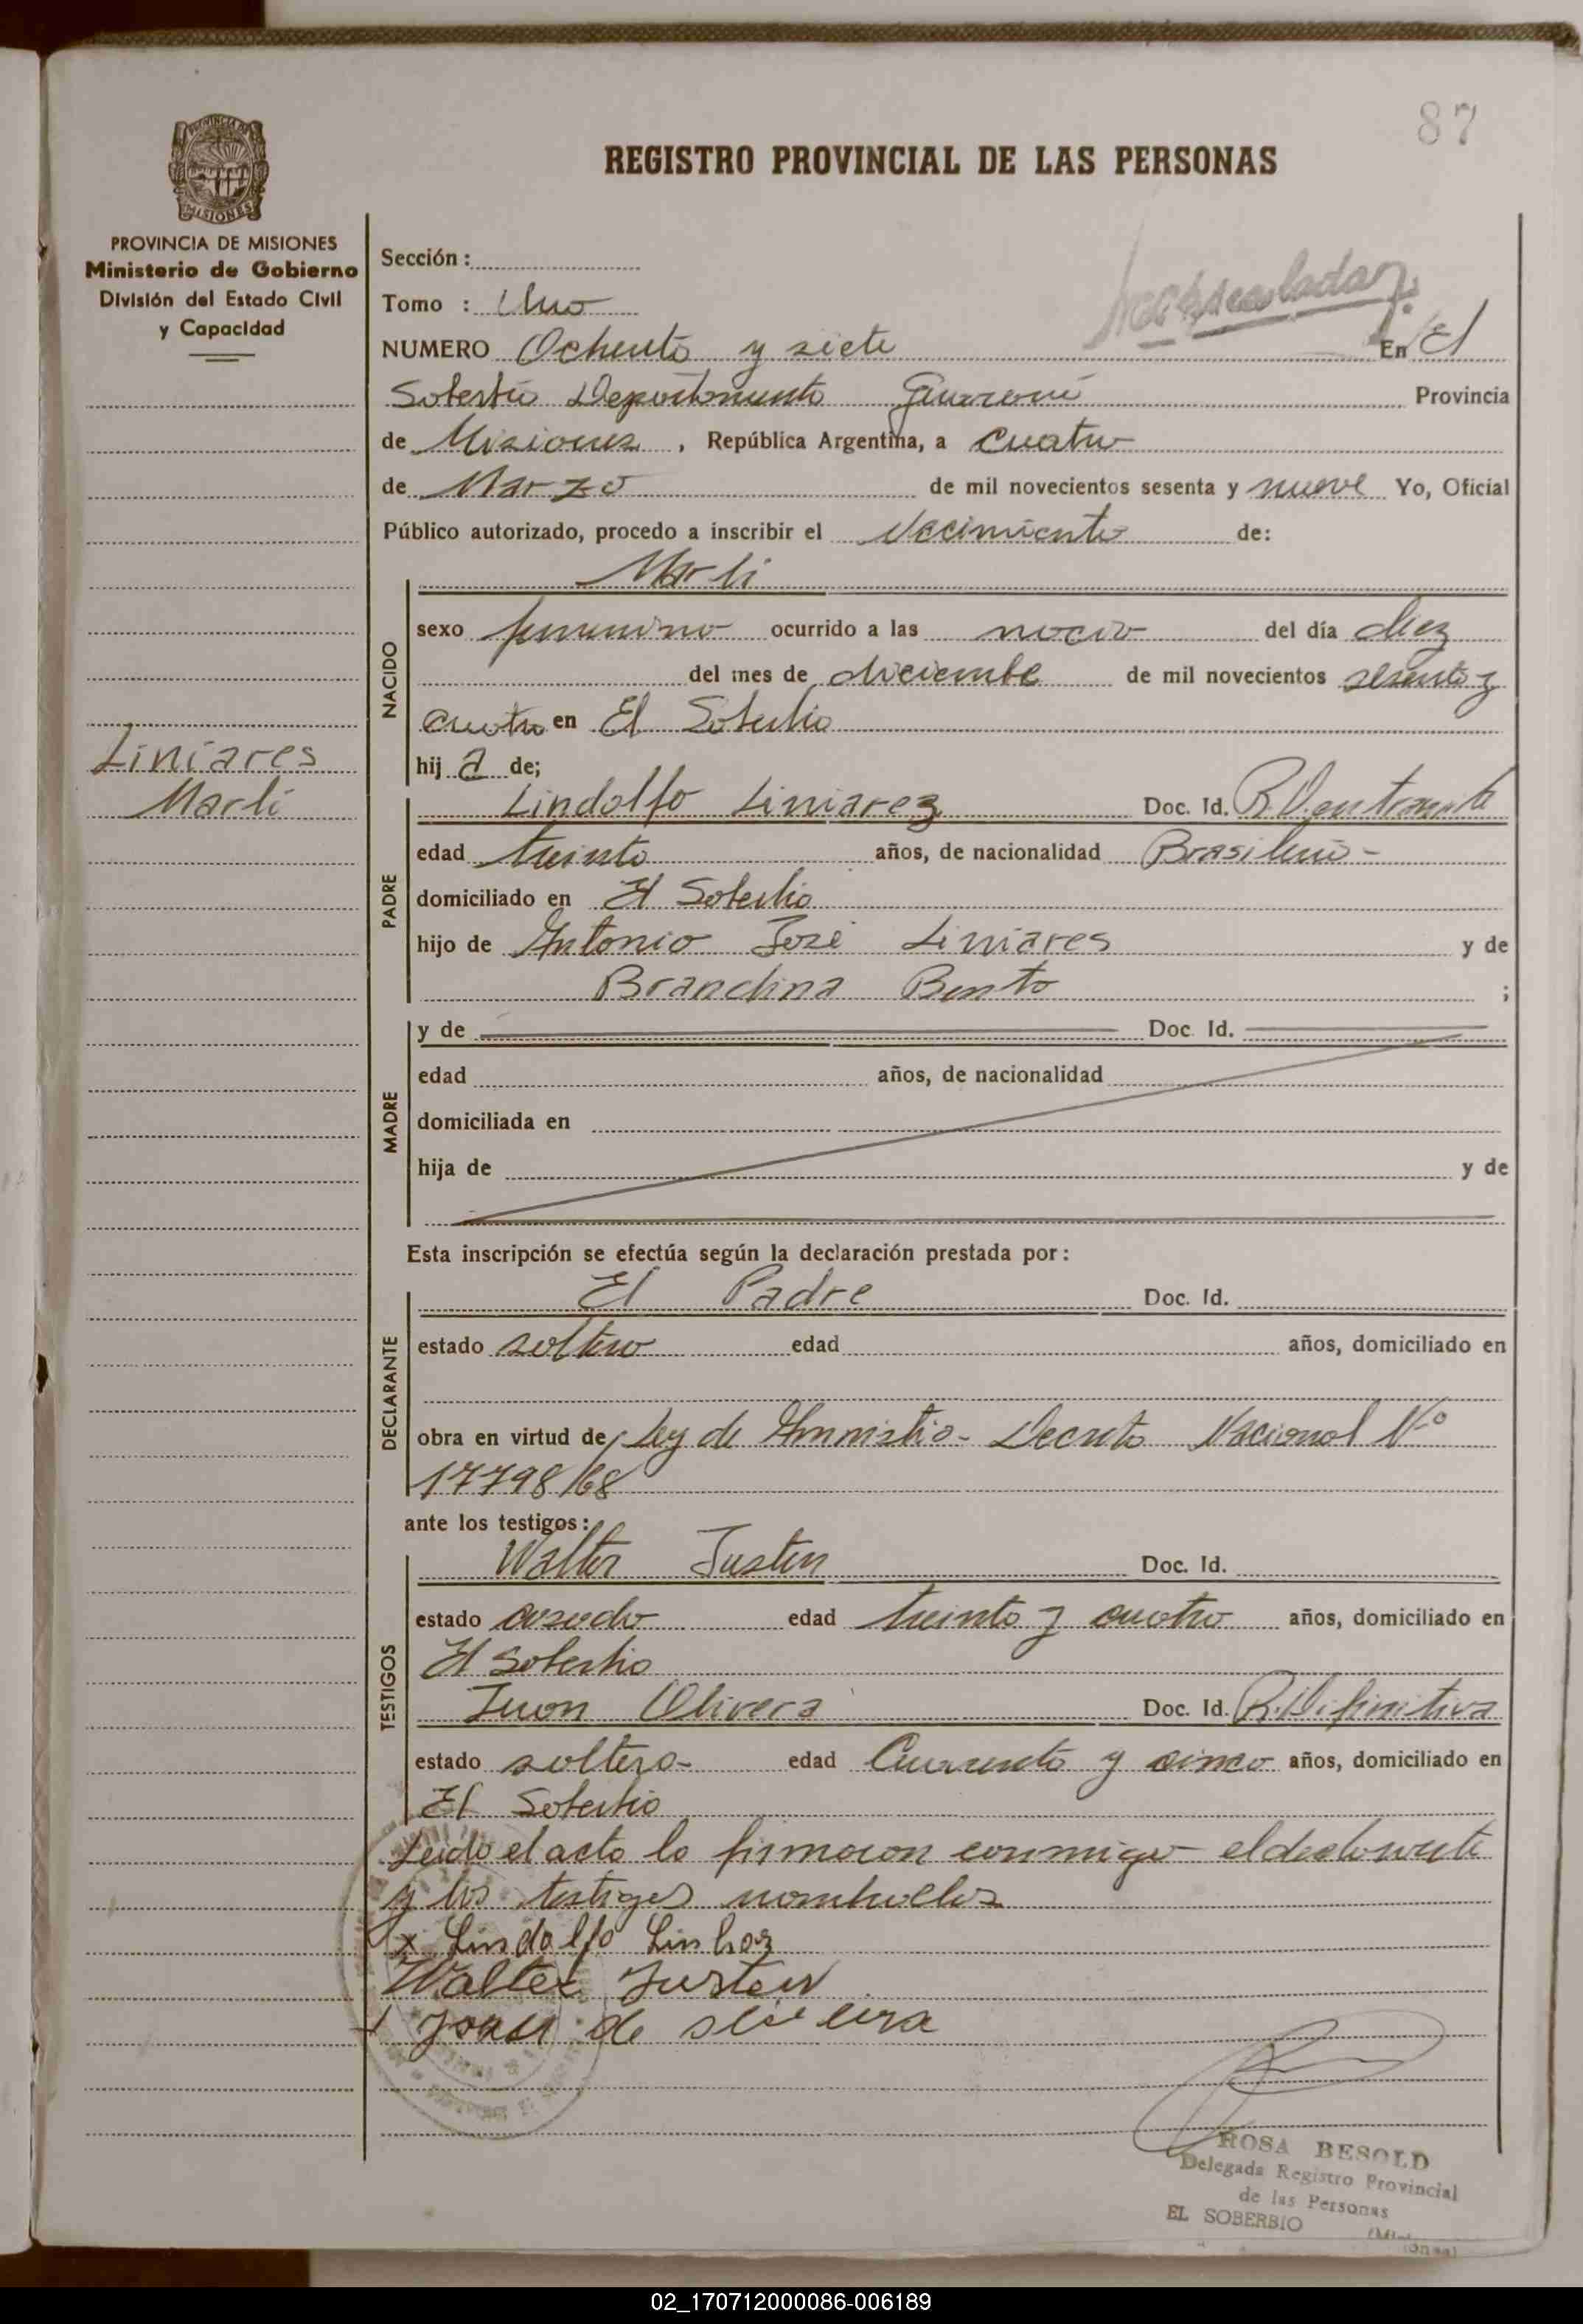 87
REGISTRO PROVINCIAL DE LAS PERSONAS
PROVINCIA DE
MISIONES
PROVINCIA DE MISIONES
Ministerio de Gobierno
División del Estado Civil
y Capacidad
Sección :
Tomo : Uno
NUMERO Ochenta y siete En El
Soberbio Departamento Guarani Provincia
de Misiones , República Argentina, a cuatro
de Marzo de mil novecientos sesenta y nueve Yo, Oficial
Público autorizado, procedo a inscribir el Nacimiento de:
Marli
NACIDO
sexo femenino ocurrido a las del día diez
del mes de diciembre de mil novecientos sesenta y
cuatro en El Soberbio
hij a de;
Liniares
Marli
PADRE
Lindolfo Liniarez Doc. Id.
edad treinta años, de nacionalidad Brasileño -
domiciliado en El Soberbio
hijo de Antonio José Liniares y de
Brandina Bento ;
MADRE
y de Doc. Id.
edad años, de nacionalidad
domiciliada en
hija de y de
Esta inscripción se efectúa según la declaración prestada por :
DECLARANTE
El Padre Doc. Id.
estado soltero edad años, domiciliado en
obra en virtud de ley de Amnistia - Decreto Nacional Nº
17798/68
ante los testigos :
TESTIGOS
Walter Justen Doc. Id.
estado casado edad treinta y cuatro años, domiciliado en
El Soberbio
Juan Olivera Doc. Id. R. Difinitiva
estado soltero - edad Cuarenta y cinco años, domiciliado en
El Soberbio
Leido el acta la firmaron conmigo el declarante
y los testigos nombrados
x Lindolfo Linhaz
Walter Justen
+ de
ROSA BESOLD
Delegada Registro Provincial
de las Personas
EL SOBERBIO
02_170712000086-006189